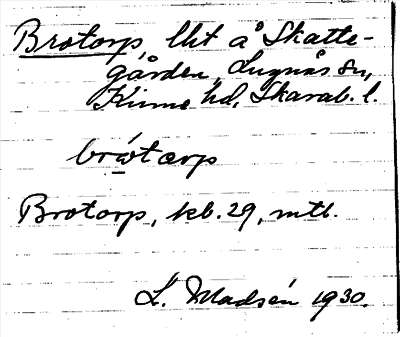 Brotorp, lht å Skatte-
gården, Lugnås sn,
Kinne hd, Skarab. l.
brótærp
Brotorp, kb. 29, mtl.
L. Madsén 1930.